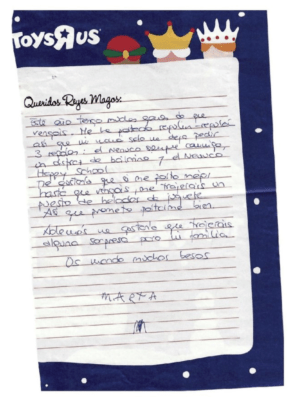 ToysЯUs
Queridos Reyes Magos:
Este año tengo muchas ganas de que
vengais, Me he portado regular - regular
así que mi mama solo me deja pedir
3 regalos: el Nenuco siempre conmigo,
un disfraz de bailarina y el Nenuco
Happy School
Me gustaría que si me porto mejor
hasta que vengais, me trajerais un
puesto de helados de juguete
Así que prometo portarme bien.
Además me gustaría que trajerais
alguna sorpresa para mi familia.
Os mando muchos besos
MARTA